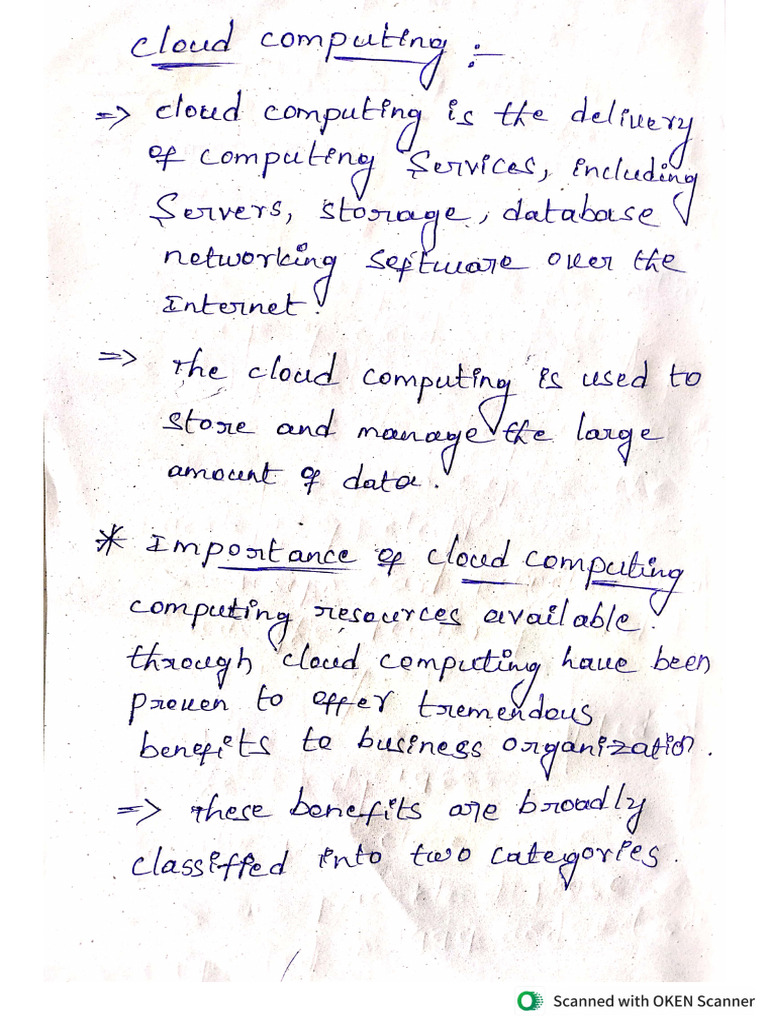 cloud computing :-
=> cloud computing is the delivery
of computing Services, including
Servers, storage, database
networking software over the
Internet.
=> the cloud computing is used to
store and manage the large
amount of data.
* Importance of cloud computing
computing resources available
through cloud computing have been
proven to offer tremendous
benefits to business organization.
=> these benefits are broadly
classified into two categories.
Scanned with OKEN Scanner